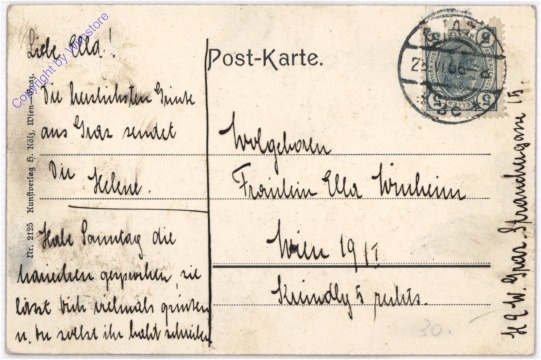 Liebe Ella!
Die herzlichsten Grüße
aus Graz sendet
Dir Helene.
Habe Sonntag die
gesprochen, sie
lässt Dich vielmals grüßen
u. Du sollst ihr bald schreiben
Copyright by vintagestore
Nr. 2125 Kunstverlag H. Kölz, Wien—Graz.
Post-Karte.
Wolgeboren
Fräulein Ella
Wien 19/1
5 rechts.
Graz 15.
5 5
5 5
GRAZ
30.-